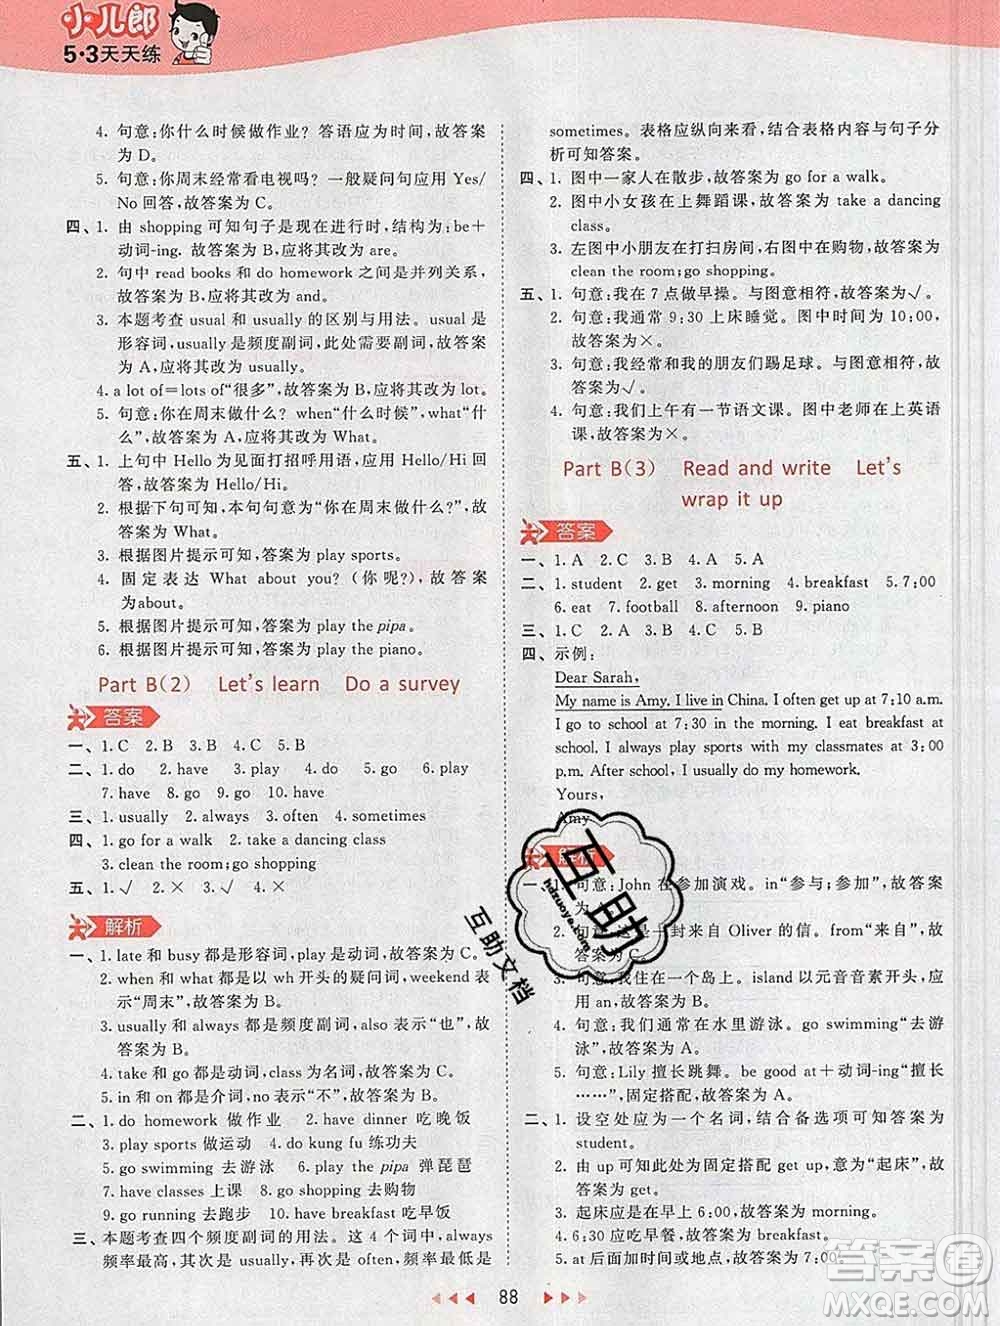 小儿郎
5·3天天练
4. 句意:你什么时候做作业? 答语应为时间,故答案
为 D。
5. 句意:你周末经常看电视吗? 一般疑问句应用 Yes/
No 回答,故答案为 C。
四、1. 由 shopping 可知句子是现在进行时,结构为:be+
动词-ing. 故答案为 B,应将其改为 are。
2. 句中 read books 和 do homework 之间是并列关系,
故答案为 B,应将其改为 and。
3. 本题考查 usual 和 usually 的区别与用法。usual 是
形容词,usually 是频度副词,此处需要副词,故答案
为 B,应将其改为 usually。
4. a lot of=lots of“很多”,故答案为 B,应将其改为 lot。
5. 句意:你在周末做什么? when“什么时候”,what“什
么”,故答案为 A,应将其改为 What。
五、1. 上句中 Hello 为见面打招呼用语,应用 Hello/Hi 回
答,故答案为 Hello/Hi。
2. 根据下句可知,本句句意为“你在周末做什么”,故
答案为 What。
3. 根据图片提示可知,答案为 play sports。
4. 固定表达 What about you?(你呢?),故答案
为about。
5. 根据图片提示可知,答案为 play the pipa。
6. 根据图片提示可知,答案为 play the piano。
Part B(2) Let's learn Do a survey
答案
一、1. C 2. B 3. B 4. C 5. B
二、1. do 2. have 3. play 4. do 5. go 6. play
7. have 8. go 9. go 10. have
三、1. usually 2. always 3. often 4. sometimes
四、1. go for a walk 2. take a dancing class
3. clean the room;go shopping
五、1. √ 2. × 3. √ 4. ×
解析
一、1. late 和 busy 都是形容词,play 是动词,故答案为 C。
2. when 和 what 都是以 wh 开头的疑问词,weekend 表
示“周末”,故答案为 B。
3. usually 和 always 都是频度副词,also 表示“也”,故
答案为 B。
4. take 和 go 都是动词,class 为名词,故答案为 C。
5. in 和 on 都是介词,no 表示“不”,故答案为 B。
二、1. do homework 做作业 2. have dinner 吃晚饭
3. play sports 做运动 4. do kung fu 练功夫
5. go swimming 去游泳 6. play the pipa 弹琵琶
7. have classes 上课 8. go shopping 去购物
9. go running 去跑步 10. have breakfast 吃早饭
三、本题考查四个频度副词的用法。这 4 个词中,always
频率最高,其次是 usually,再次是 often,频率最低是
sometimes。表格应纵向来看,结合表格内容与句子分
析可知答案。
四、1. 图中一家人在散步,故答案为 go for a walk。
2. 图中小女孩在上舞蹈课,故答案为 take a dancing
class。
3. 左图中小朋友在打扫房间,右图中在购物,故答案为
clean the room;go shopping。
五、1. 句意:我在 7 点做早操。与图意相符,故答案为√。
2. 句意:我通常 9:30 上床睡觉。图中时间为 10:00,
故答案为×。
3. 句意:我经常和我的朋友们踢足球。与图意相符,故
答案为√。
4. 句意:我们上午有一节语文课。图中老师在上英语
课,故答案为×。
Part B(3) Read and write Let's
wrap it up
答案
一、1. A 2. C 3. B 4. A 5. A
二、1. student 2. get 3. morning 4. breakfast 5. 7:00
6. eat 7. football 8. afternoon 9. piano
三、1. C 2. A 3. B 4. C
四、示例:
Dear Sarah,
My name is Amy. I live in China. I often get up at 7:10 a.m.
I go to school at 7:30 in the morning. I eat breakfast at
school. I always play sports with my classmates at 3:00
p.m. After school, I usually do my homework.
Yours,
Amy
解析
一、1. 句意:John 在参加演戏。in“参与;参加”,故答案
为
2. 句意:这是一封来自 Oliver 的信。from“来自”,故
答案为 C。
3. 句意:我住在一个岛上。island 以元音音素开头,应
用 an,故答案为 B。
4. 句意:我们通常在水里游泳。go swimming“去游
泳”,故答案为 A。
5. 句意:Lily 擅长跳舞。be good at+动词-ing“擅长
……”,固定搭配,故答案为 A。
二、1. 设空处应为一个名词,结合备选项可知答案为
student。
2. 由 up 可知此处为固定搭配 get up,意为“起床”,故
答案为 get。
3. 起床应是在早上 6:00,故答案为 morning。
4. 6:30 应吃早餐,故答案为 breakfast。
5. at 后面加时间或地点,故答案为 7:00。
88
互助
hdzuoye.com
互助文档
答案圈
MXQE.COM